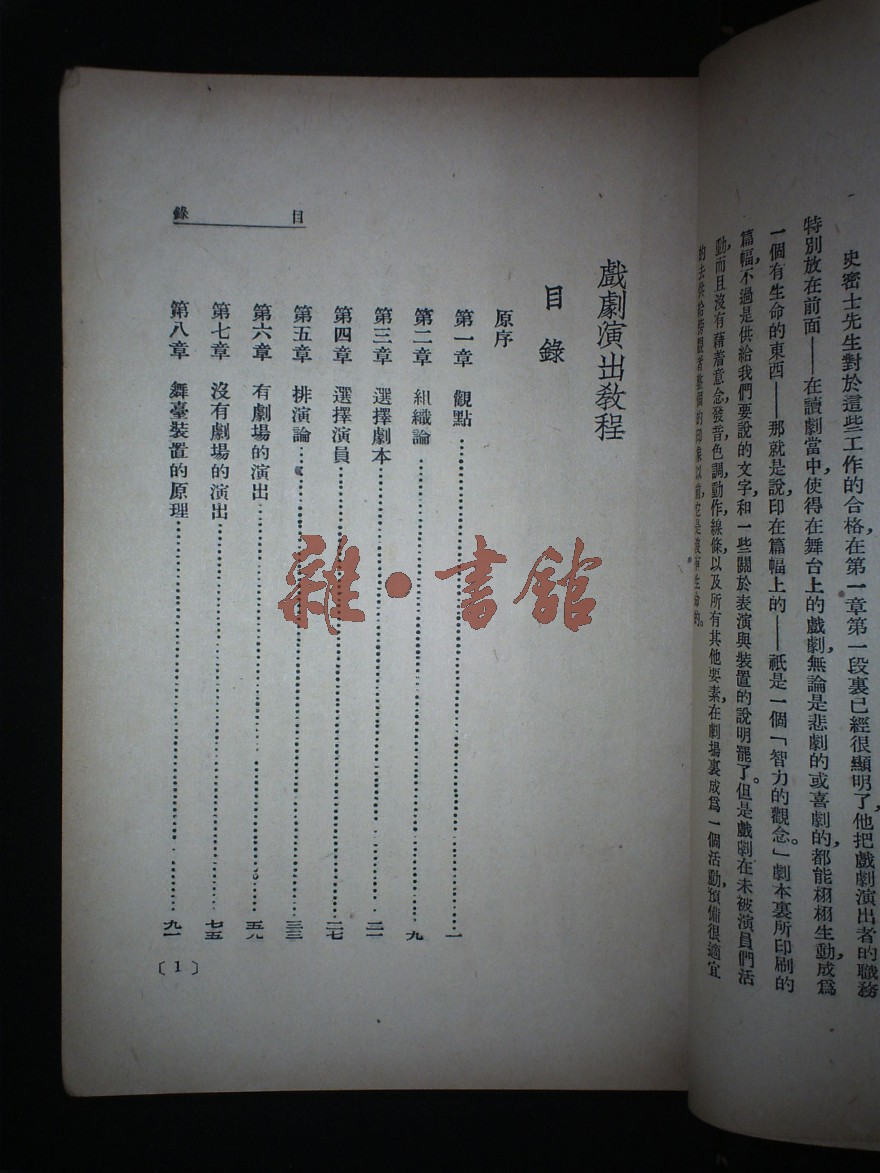 史密士先生對於這些工作的合格,在第一章第一段裏已經很顯明了,他把戲劇演出者的職務
特別放在前面——在讀劇當中,使得在舞台上的戲劇,無論是悲劇的或喜劇的,都能栩栩生動,成爲
一個有生命的東西——那就是說印在篇幅上的——祇是一個「智力的觀念。」劇本裏所印刷的
篇幅,不過是供給我們要說的文字,和一些關於表演與裝置的說明罷了。但是戲劇在未被演員們活
動,而且沒有藉着意念,發音,色調,動作,線條,以及所有其他要素,在劇場裏成爲一個活動,預備很適宜
的去供給旁觀者整個的印象以前,它是沒有生命的。
目錄
戲劇演出教程
目錄
原序
第一章 觀點 一
第二章 組織論 九
第三章 選擇劇本 二一
第四章 選擇演員 二七
第五章 排演論 三三
第六章 有劇場的演出 五九
第七章 沒有劇場的演出 七五
第八章 舞臺裝置的原理 九一
〔1〕
雜·書館